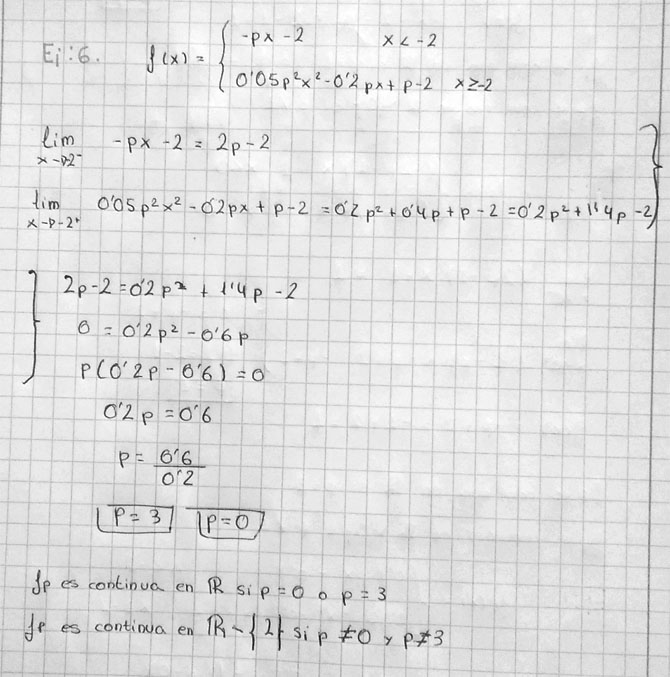 Ej:6. f(x) = { -px -2 x < -2
0'05p²x² - 0'2px + p-2 x ≥ -2
lim x→-2⁻ -px -2 = 2p-2
lim x→-2⁺ 0'05p²x² - 0'2px + p-2 = 0'2p² + 0'4p + p - 2 = 0'2p² + 1'4p - 2 }
} 2p-2 = 0'2p² + 1'4p - 2
0 = 0'2p² - 0'6p
p(0'2p - 0'6) = 0
0'2p = 0'6
p = 0'6 / 0'2
p = 3 p = 0
fp es continua en ℝ si p = 0 o p = 3
fp es continua en ℝ - {2} si p ≠ 0 y p ≠ 3